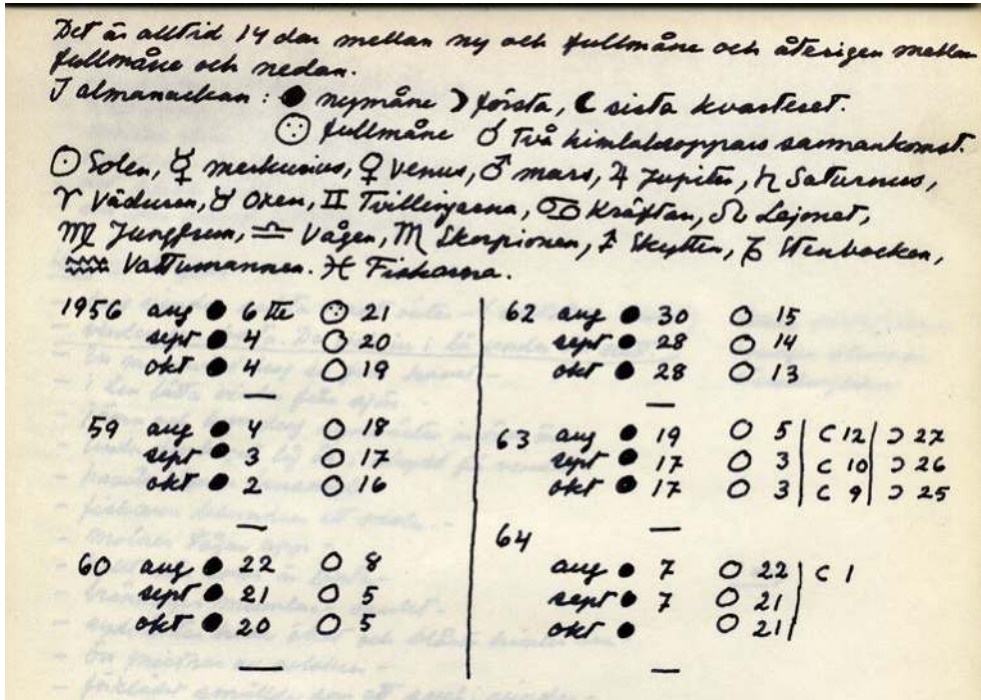 Det är alltid 14 dar mellan ny och fullmåne och återigen mellan
fullmåne och nedan.
I almanackan: ● nymåne ☽ första, ☾ sista kvarteret.
fullmåne ☌ Två himlakroppars sammankomst.
☉ Solen, ☿ merkurius, ♀ Venus, ♂ mars, ♃ Jupiter, ♄ Saturnus,
♈ Väduren, ♉ Oxen, ♊ Tvillingarna, ♋ Kräftan, ♌ Lejonet,
♍ Jungfrun, ♎ Vågen, ♏ Skorpionen, ♐ Skytten, ♑ Stenbocken,
♒ Vattumannen. ♓ Fiskarna.
1956 aug ● 6 ○ 21
sept ● 4 ○ 20
okt ● 4 ○ 19
—
59 aug ● 4 ○ 18
sept ● 3 ○ 17
okt ● 2 ○ 16
—
60 aug ● 22 ○ 8
sept ● 21 ○ 5
okt ● 20 ○ 5
—
62 aug ● 30 ○ 15
sept ● 28 ○ 14
okt ● 28 ○ 13
—
63 aug ● 19 ○ 5 | ☾ 12 | ☽ 27
sept ● 17 ○ 3 | ☾ 10 | ☽ 26
okt ● 17 ○ 3 | ☾ 9 | ☽ 25
—
64
aug ● 7 ○ 22 | ☾ 1
sept ● 7 ○ 21
okt ● ○ 21
—